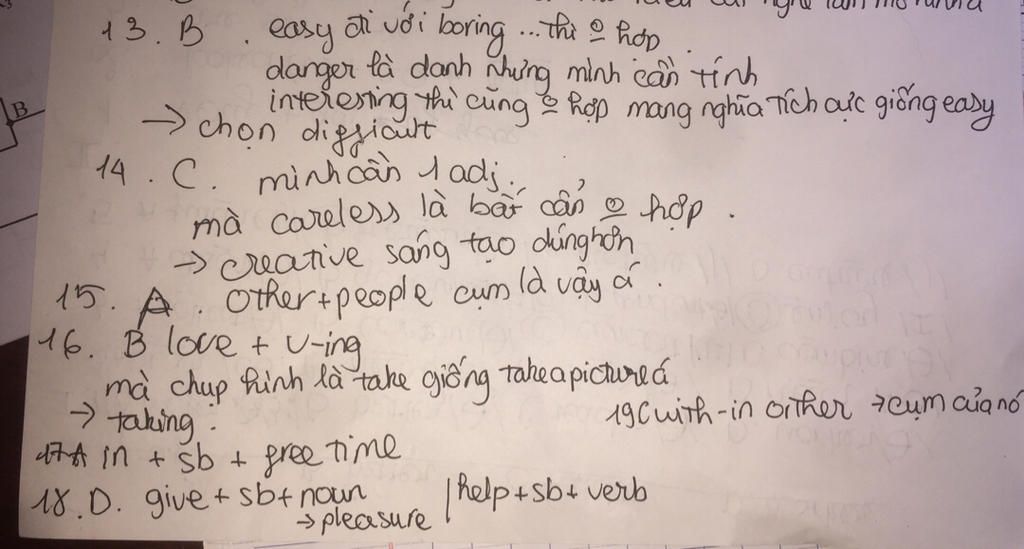 13. B. easy đi với boring ... thì o hợp.
danger là danh nhưng mình cần tính
interesing thì cũng o hợp mang nghĩa tích cực giống easy
→ chọn difficult
14. C. mình cần 1 adj.
mà careless là bất cẩn o hợp.
→ creative sáng tạo đúng hơn
15. A other + people cụm là vậy á.
16. B love + V-ing
mà chụp hình là take giống take a picture á
→ taking:
19C with-in orither → cụm của nó
17A in + sb + free time
18. D. give + sb + noun | help + sb + verb
→ pleasure
B